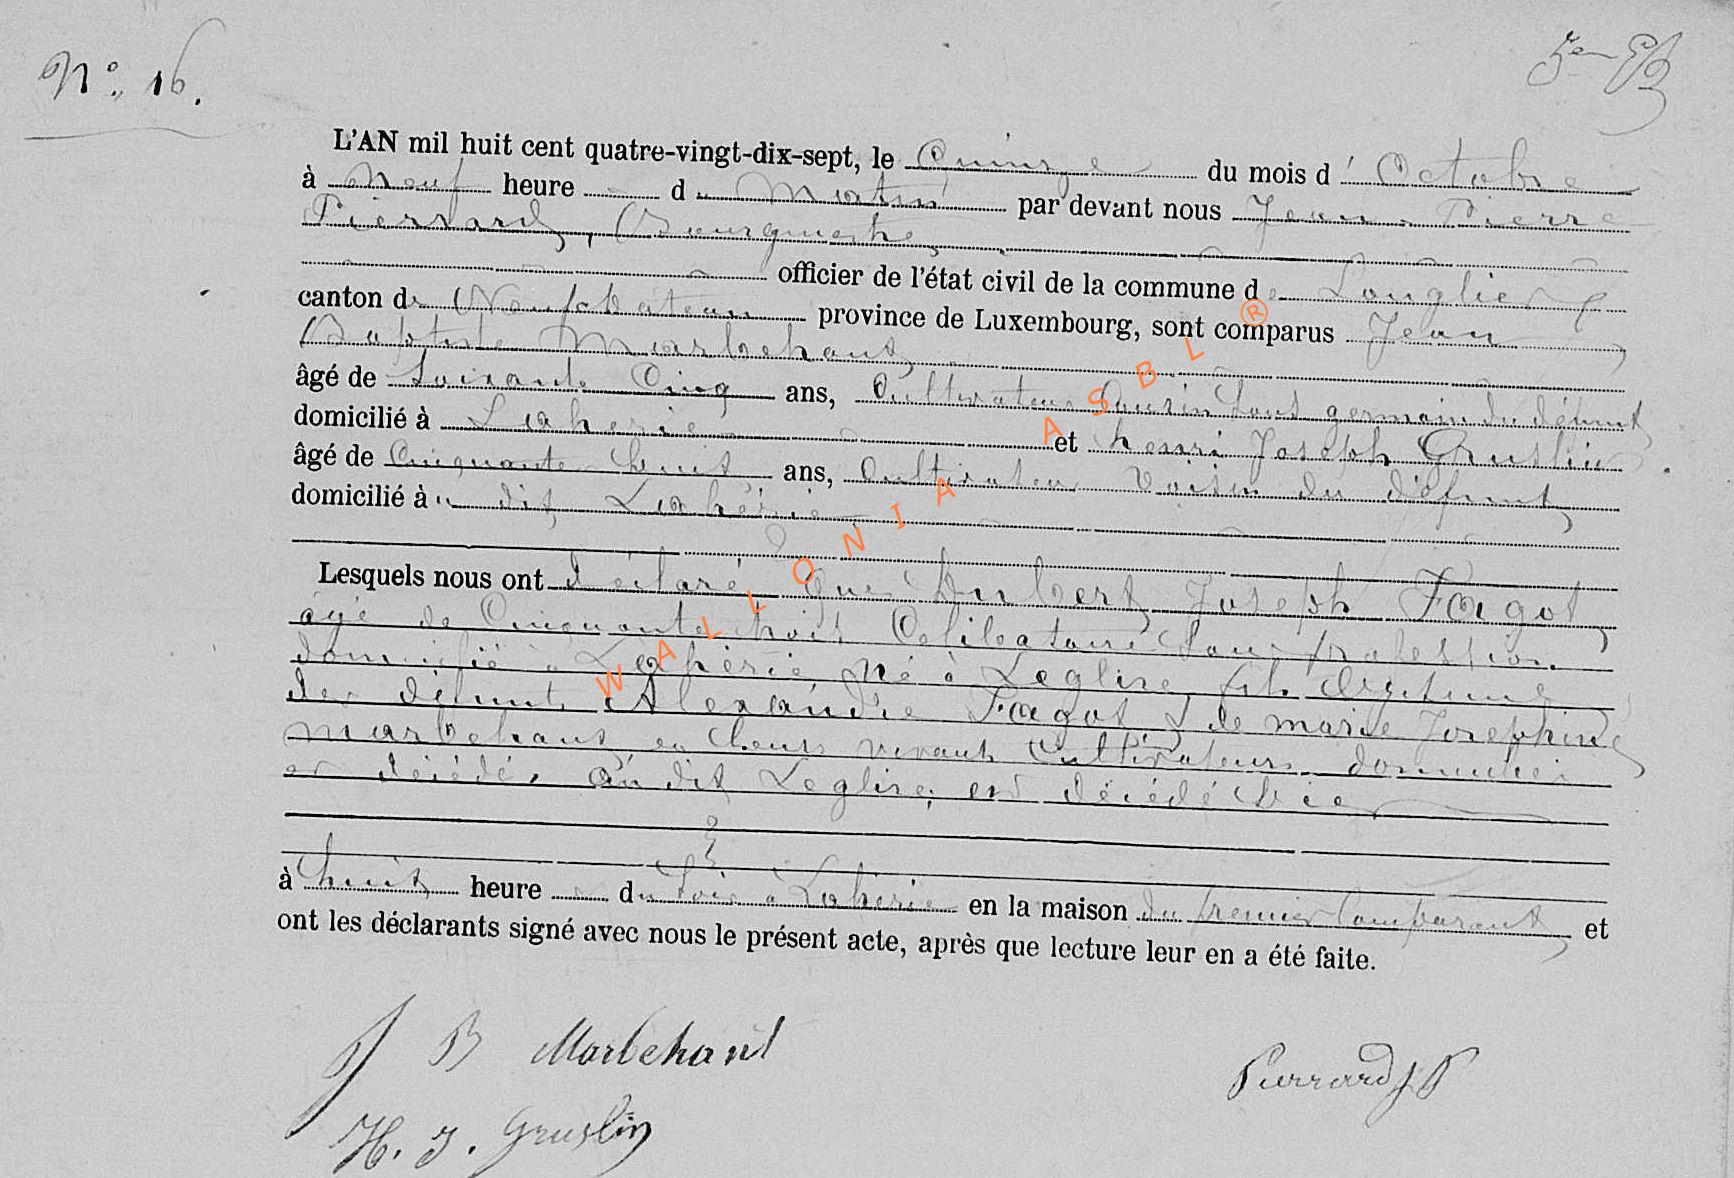 N°. 16.
L'AN mil huit cent quatre-vingt-dix-sept, le Quinze du mois d' Octobre
à Neuf heure du Matin par devant nous Jean-Pierre
Pierrard, Bourgmestre
officier de l'état civil de la commune de Longlier
canton de Neufchateau province de Luxembourg, sont comparus Jean
Baptiste Marbehant
âgé de Soixante Cinq ans, Cultivateur Cousin Sous germain du défunt
domicilié à Laherie et henri Joseph Gruslin
âgé de Cinquante huit ans, Cultivateur Voisin du défunt
domicilié à u dit Lahérie
Lesquels nous ont déclaré que hubert Joseph Fagot
âgé de Cinquante trois Celibataire Sans profession
domicilié à Lahèrie né à Leglise fils légitime
des défunts Alexandre Fagot & de marie Josephine
marbehant en leurs vivants Cultivateurs domiciliés
et décédés au dit Leglise, est décédé hier
à huit heure du Soir à Laherie en la maison du premier Comparant et
ont les déclarants signé avec nous le présent acte, après que lecture leur en a été faite.
J B Marbehant
Pierrard J P
H. J. Gruslin
WALLONIA ASBL ®